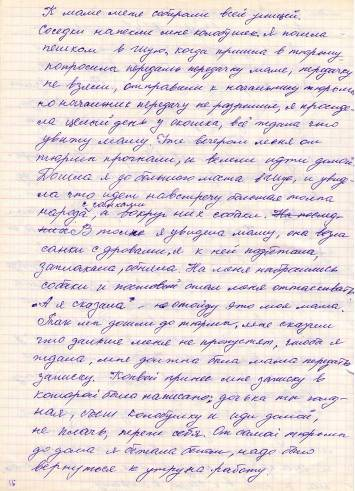 К маме меня собрали всей улицей.
Соседки нанесли мне колобушек. Я пошла
пешком в Шую, когда пришла в тюрьму
попросила передать передачку маме, передачку
не взяли, отправили к начальнику тюрьмы
но начальник передачу не разрешил, я просиде-
ла целый день у окошка, всё ждала что
увижу маму. Уже вечером меня от
тюрьмы прогнали, и велели идти домой.
Пошла я до большого моста в Шую, и увиде-
ла что идёт навстречу большая толпа
народа с собаками, а вокруг них собаки.
В толпе я увидела маму, она везла
санки с дровами, я к ней подбежала,
заплакала, обняла. На меня набросились
собаки и постовой стал меня оттаскивать.
А я сказала - не отойду это моя мама.
Так мы дошли до тюрьмы, мне сказали
что дальше меня не пропустят, чтобы я
ждала, мне должна была мама передать
записку. Конвой принёс мне записку в
которой было написано: дочька ты голод-
ная, съешь колобушку и иди домой,
не плачь, береги себя. От самой тюрьмы
до дома я бежала бегом, надо было
вернуться к утру на работу.